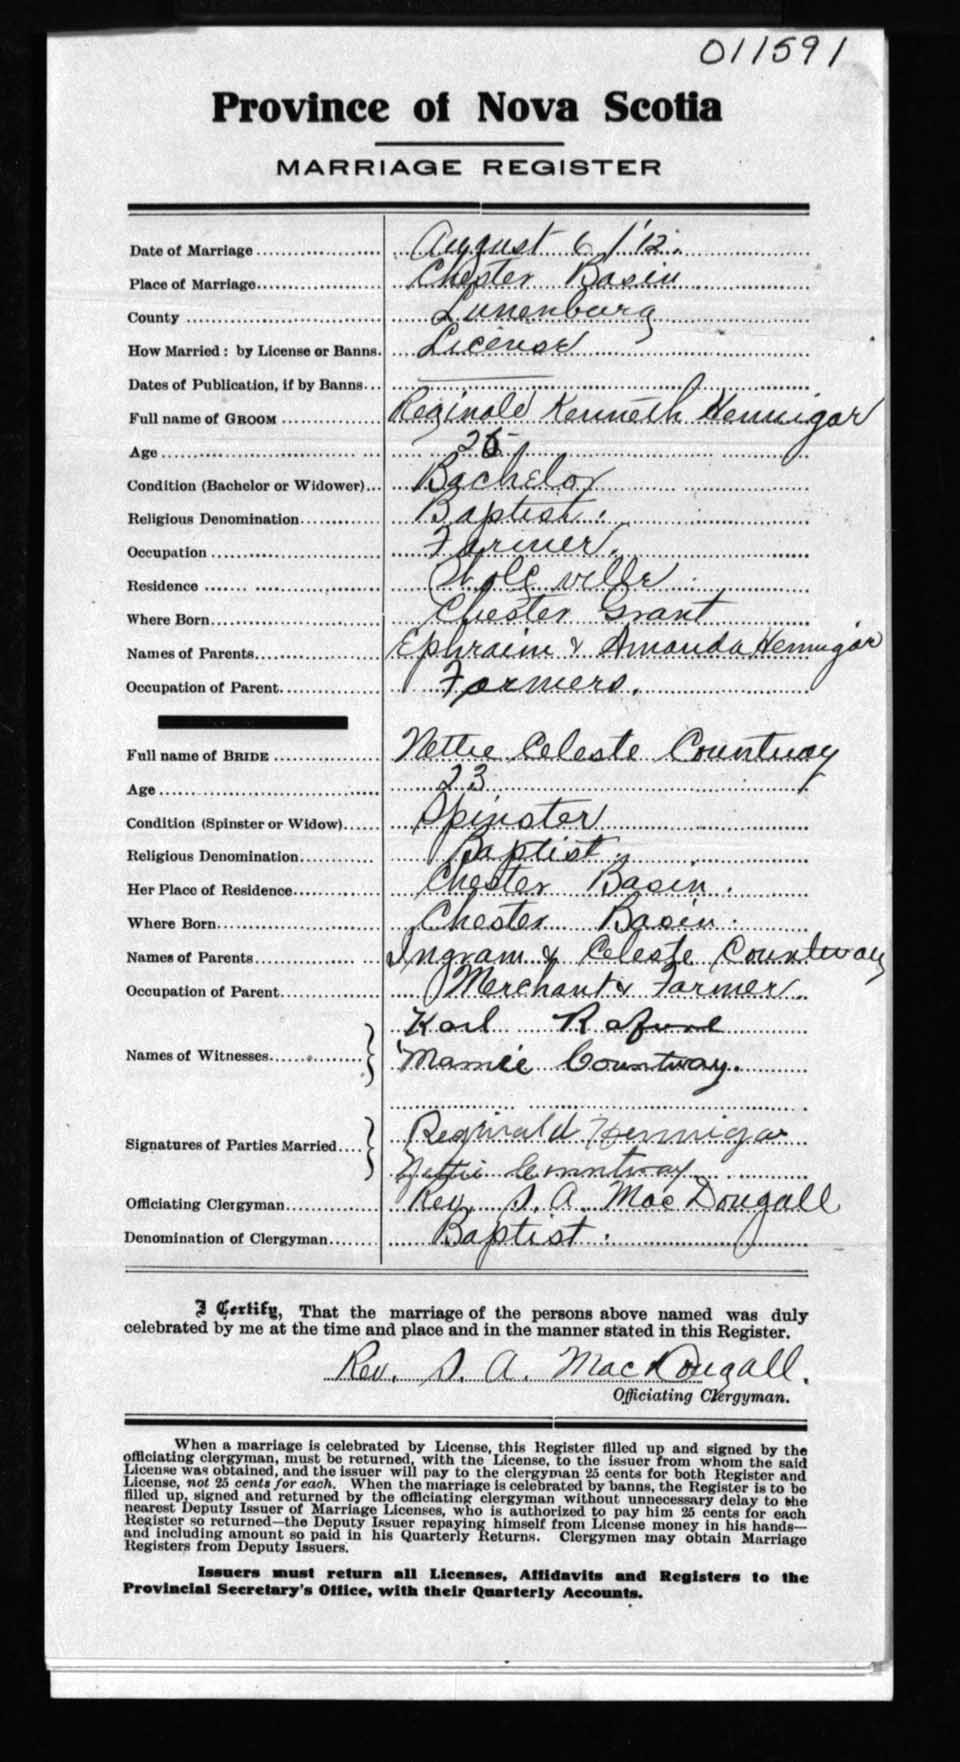 011591
Province of Nova Scotia
MARRIAGE REGISTER
Date of Marriage August 6 / '12.
Place of Marriage Chester Basin
County Lunenburg
How Married: by License or Banns. License
Dates of Publication, if by Banns
Full name of GROOM Reginald Kenneth Hennigar
Age 25
Condition (Bachelor or Widower) Bachelor
Religious Denomination Baptist.
Occupation Farmer.
Residence ville
Where Born Chester Grant
Names of Parents Ephraim & Amanda Hennigar
Occupation of Parent Farmers.
Full name of BRIDE Nettie Celeste Countway
Age 23
Condition (Spinster or Widow) Spinster
Religious Denomination Baptist
Her Place of Residence Chester Basin.
Where Born Chester Basin.
Names of Parents Ingram & Celeste Countway
Occupation of Parent Merchant & Farmer.
Karl Rafuse
Names of Witnesses Mamie Countway.
Signatures of Parties Married Reginald Hennigar
Nettie Countway
Officiating Clergyman Rev. S. A. MacDougall
Denomination of Clergyman Baptist.
I Certify, That the marriage of the persons above named was duly
celebrated by me at the time and place and in the manner stated in this Register.
Rev. S. A. MacDougall.
Officiating Clergyman.
When a marriage is celebrated by License, this Register filled up and signed by the
officiating clergyman, must be returned, with the License, to the issuer from whom the said
License was obtained, and the issuer will pay to the clergyman 25 cents for both Register and
License, not 25 cents for each. When the marriage is celebrated by banns, the Register is to be
filled up, signed and returned by the officiating clergyman without unnecessary delay to the
nearest Deputy Issuer of Marriage Licenses, who is authorized to pay him 25 cents for each
Register so returned—the Deputy Issuer repaying himself from License money in his hands—
and including amount so paid in his Quarterly Returns. Clergymen may obtain Marriage
Registers from Deputy Issuers.
Issuers must return all Licenses, Affidavits and Registers to the
Provincial Secretary's Office, with their Quarterly Accounts.